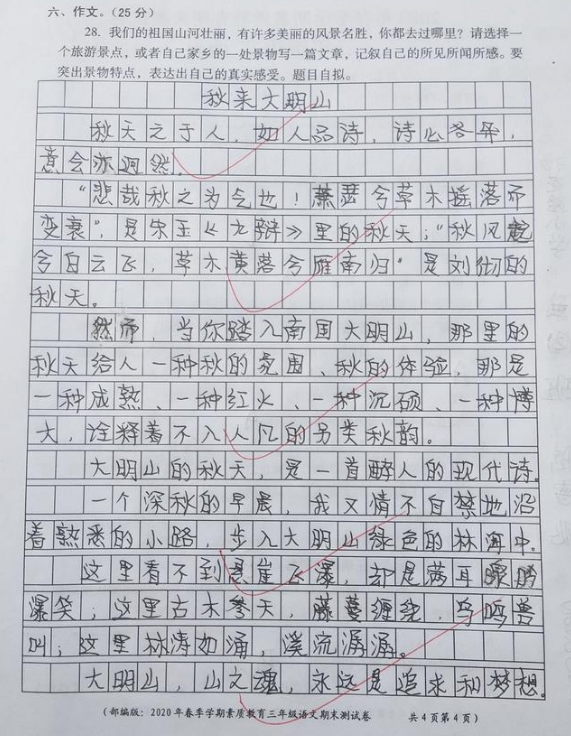 六、作文。(25分)
28. 我们的祖国山河壮丽，有许多美丽的风景名胜，你都去过哪里？请选择一
个旅游景点，或者自己家乡的一处景物写一篇文章，记叙自己的所见所闻所感。要
突出景物特点，表达出自己的真实感受。题目自拟。
秋来大明山
秋天之于人，如人品诗，诗心各异，
意会亦迥然。
“悲哉秋之为气也！萧瑟兮草木摇落而
变衰”，是宋玉《九辩》里的秋天；“秋风起
兮白云飞，草木黄落兮雁南归”是刘彻的
秋天。
然而，当你踏入南国大明山，那里的
秋天给人一种秋的氛围、秋的体验，那是
一种成熟、一种红火、一种沉硕、一种博
大，诠释着不入人凡的另类秋韵。
大明山的秋天，是一首醉人的现代诗。
一个深秋的早晨，我又情不自禁地沿
着熟悉的小路，步入大明山绿色的林海中。
这里看不到悬崖飞瀑，却是满耳
爆笑；这里古木参天，藤蔓缠绕，鸟鸣兽
叫；这里林涛如涌，溪流潺潺。
大明山，山之魂，永远是追求和梦想。
(部编版：2020年春季学期素质教育三年级语文期末测试卷 共4页第4页)